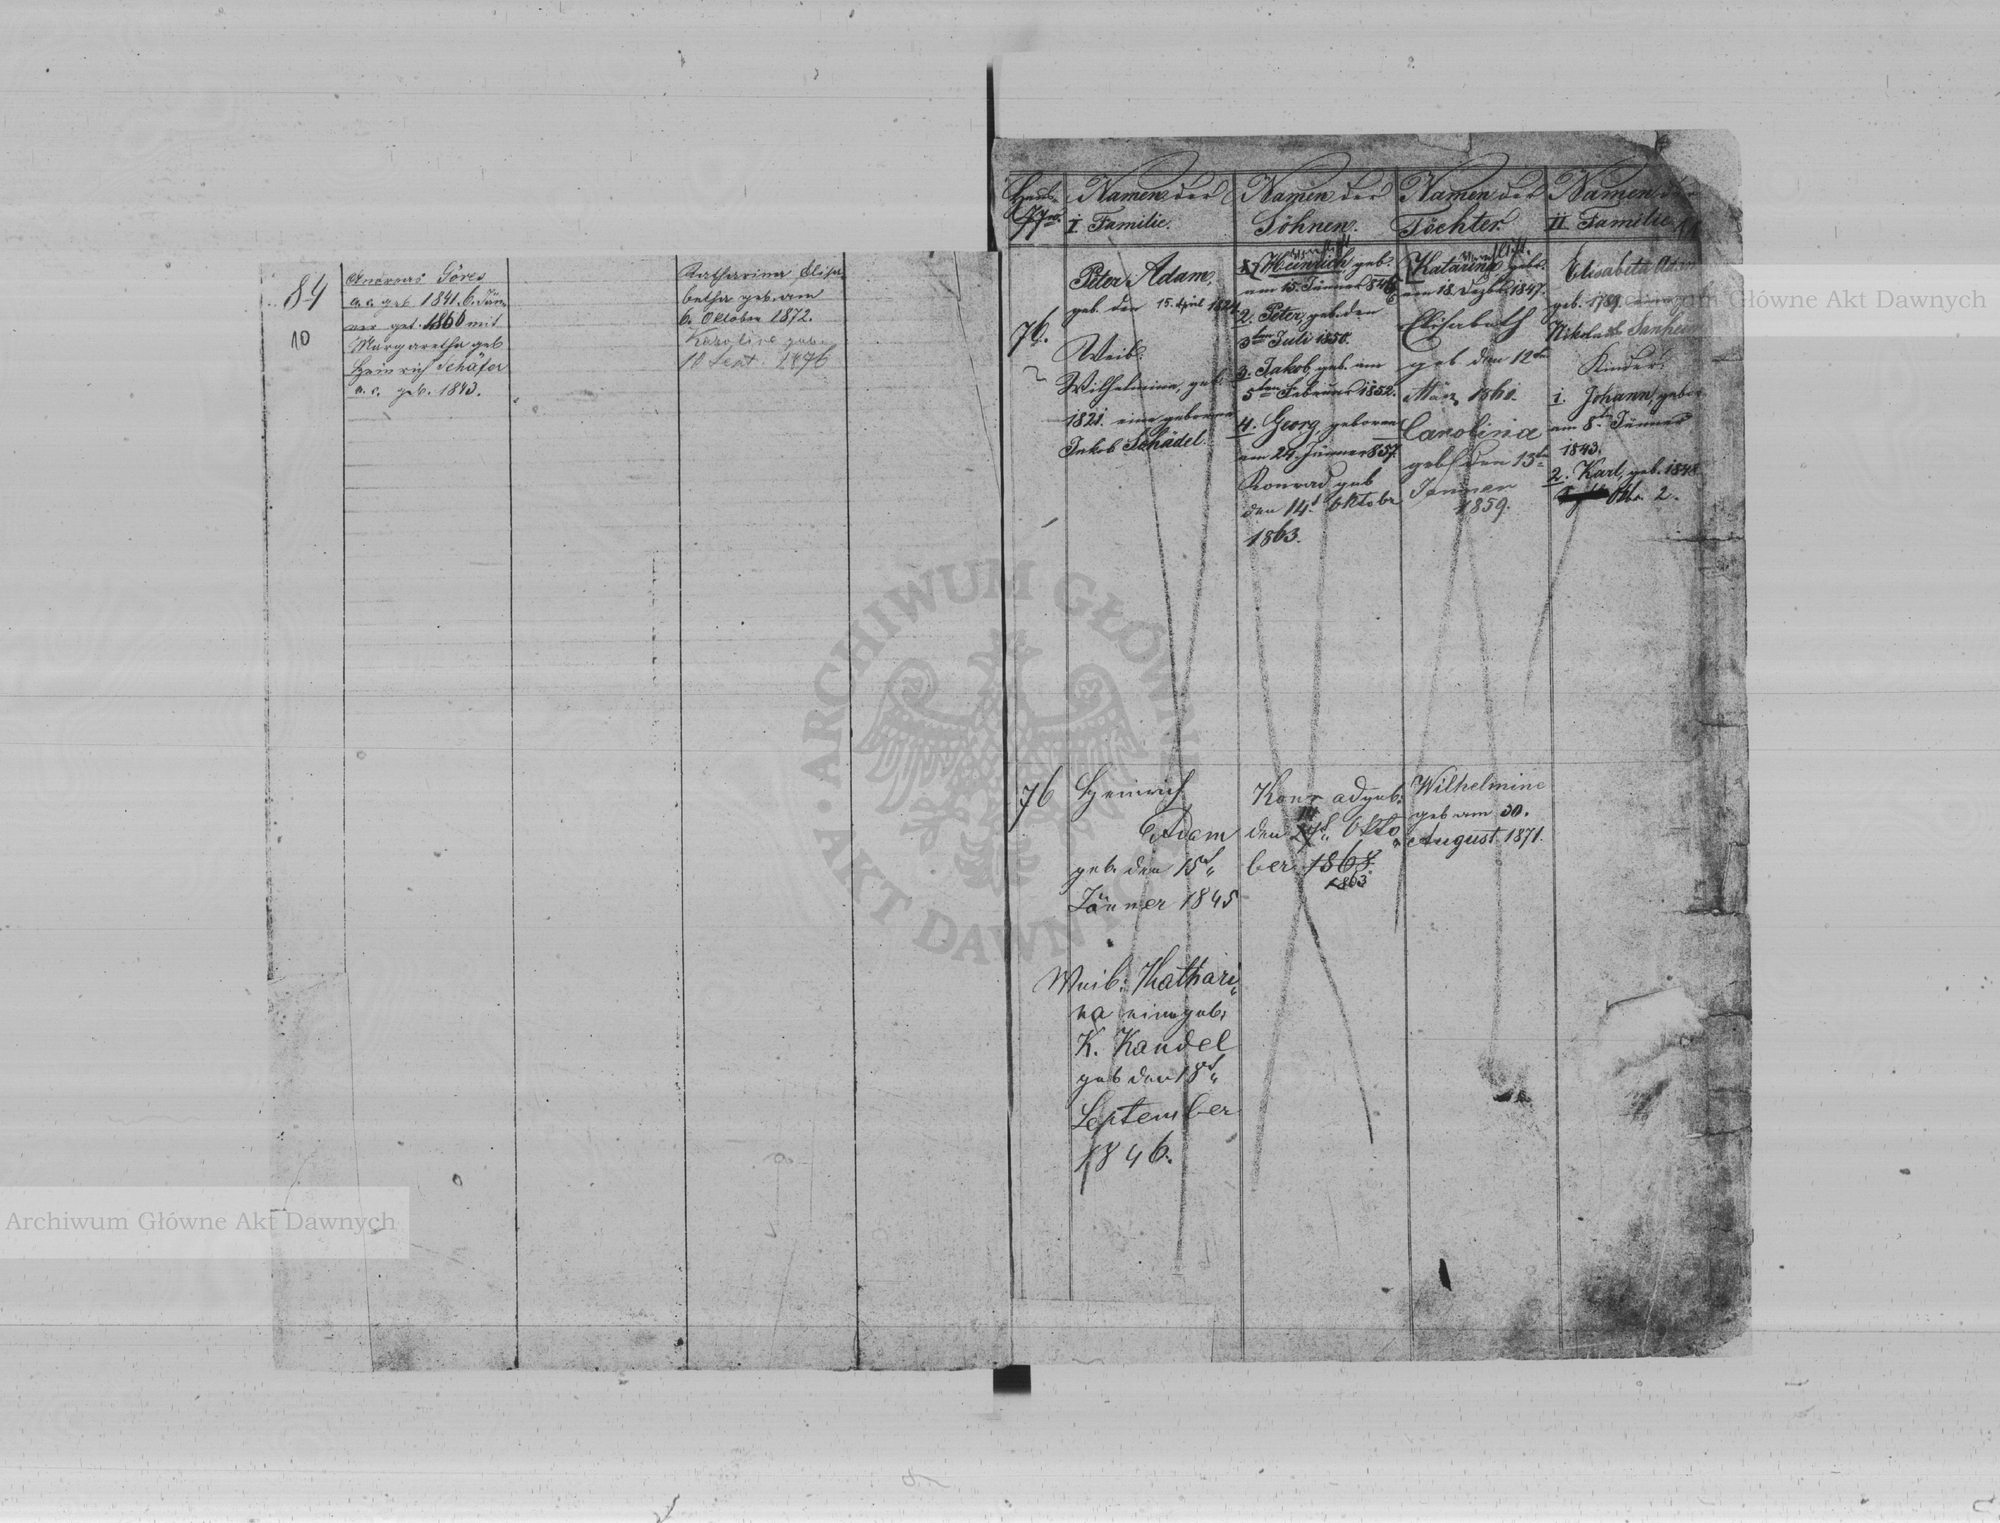 84
10
Andreas Göres
a. c. geb. 1841. 6. Jän
ner get. 1866 mit
Margaretha geb
Heinrich Schäfer
a. c. geb. 1843.
Katharina Elisa
betha geb. am
6. Oktober 1872.
Karoline geb.
10 Sept. 1876
Haus
Nro.
Namen der
I. Familie.
Namen der
Söhnen.
Namen der
Töchter.
Namen der
II. Familie
76.
Peter Adam,
geb. den 15. April 1824
Weib:
Wilhelmine, geb.
1821. eine geborene
Jakob Schädel.
Heinrich geb.
am 15. Jänner 1845
2. Peter, geb. den
3ten Juli 1850.
3. Jakob geb. am
5ten Februar 1852.
4. Georg, geboren
am 24. Jänner 857.
Konrad geb
den 14t Oktobr
1863.
Katarina geb.
am 18. Dezbr 1847.
Elisabeth
geb den 12ten
März 1861.
Carolina
geb. den 13ten
Jänner
1859.
Elisabeta Adam
geb. 1789.
Nikolaus Sanheim
Kinder:
1. Johann, gebor.
am 8t Jänner
1843.
2. Karl, geb. 1848
Okt. 2.
76
Heinrich
Adam
geb. den 15t
Jänner 1845
Weib: Kathari
na eine geb:
K. Kandel
geb den 18t
September
1846.
Konrad geb:
14
den 24t Okto
ber 1868
1863
Wilhelmine
geb am 30.
August 1871.
ARCHIWUM GŁÓWNE AKT DAWNYCH
Archiwum Główne Akt Dawnych
Archiwum Główne Akt Dawnych